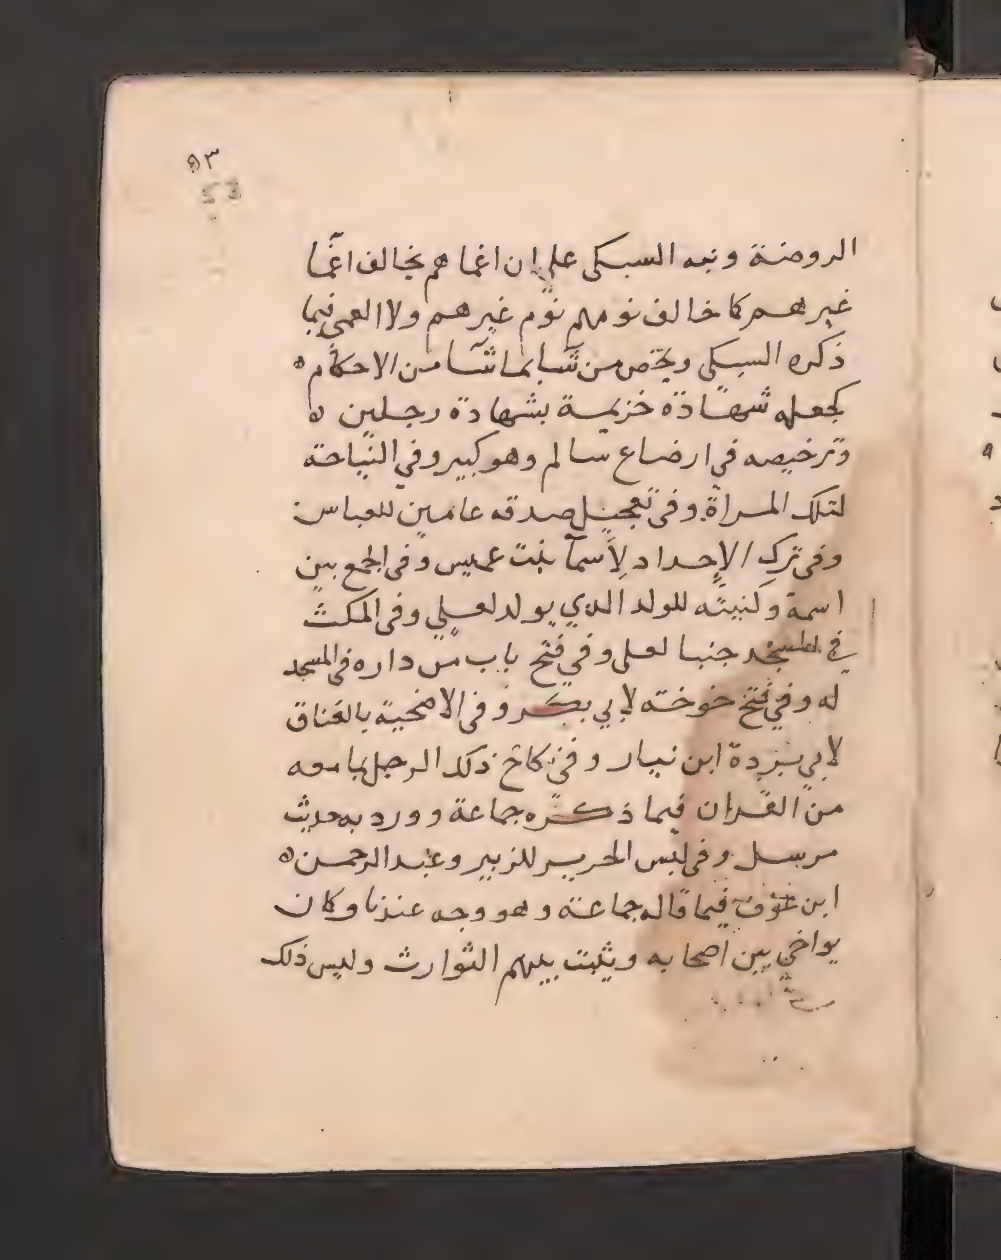 ٥٣
53
الروضة ونبه السبكى على ان اغما هم يخالف اغمآ
غيرهم كما خالف نومهم نوم غيرهم ولا العمى فيما
ذكره السبكى ويخص من شآ بما شآ من الاحكام ه
كجعله شهادة خزيمة بشهادة رجلين ه
وترخيصه في ارضاع سالم وهو كبير وفي النياحة
لتلك المرأة وفى تعجيل صدقه عامين للعباس
وفى ترك الإحداد لأسمآ بنت عميس وفى الجمع بين
اسمه وكنيته للولد الذي يولد لعلي وفى المكث
في المسجد جنبا لعلى وفي فتح باب من داره فى المسجد
له وفي فتح خوخته لابي بكر وفى الاضحية بالعناق
لابي بردة ابن نيار وفى نكاح ذلك الرجل بما معه
من القران فيما ذكره جماعة وورد به حديث
مرسل وفى لبس الحرير للزبير وعبد الرحمن ه
ابن عوف فيما قاله جماعة وهو وجه عندنا وكان
يواخي بين اصحابه ويثبت بينهم التوارث وليس ذلك